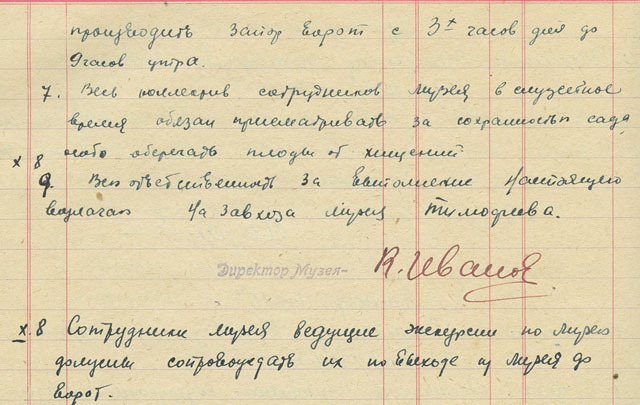 производить запор ворот с 3х часов дня до
9 часов утра.
7. Весь коллектив сотрудников музея в служебное
время обязан присматривать за сохранностью сада
х 8 особо оберегать плоды от хищений
9. Всю ответственность за выполнение настоящего
возлагаю на завхоза музея Тимофеева.
Директор Музея-
К. Иванов
х 8 Сотрудники музея ведущие экскурсии по музею
должны сопровождать их по выходе из музея до
ворот.